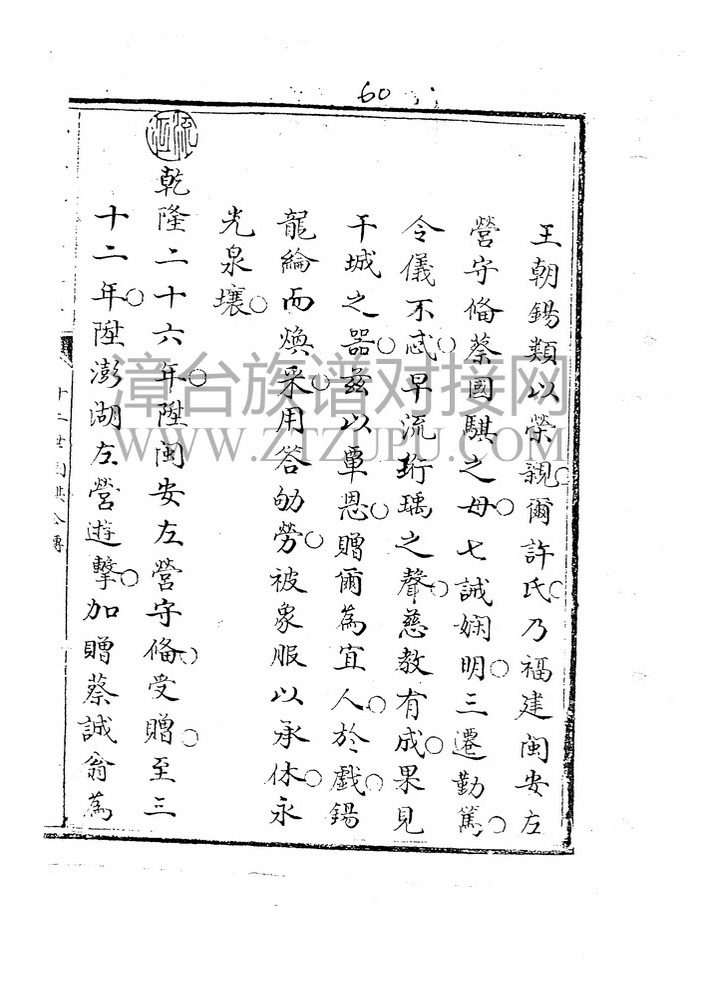 60
王朝錫類以榮親。爾許氏。乃福建閩安左
營守備蔡國騏之母。七誡嫻明。三遷勤篤。
令儀不忒。早流珩瑀之聲。慈教有成。果見
干城之器。茲以覃恩。贈爾為宜人。於戲。錫
龍綸而煥采。用答劬勞。被象服以承休。永
光泉壤。
乾隆二十六年。陞閩安左營守備。受贈。至三
十二年。陞澎湖左營遊擊。加贈蔡誠翁為
漳台族谱对接网
WWW.ZTZUPU.COM